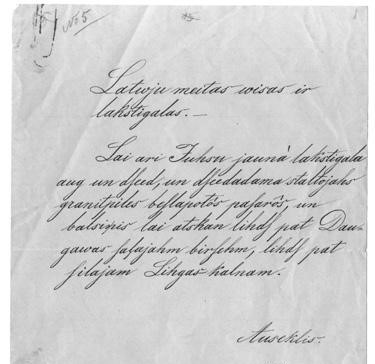 No 5
Latvju meitas wisas ir
lakstigalas. —
Lai ari Juhsu jaunà lakstigala
aug un dseed, un dseedadama staltojahs
granitpiles beslapotos pasaros, un
balsipes lai atskan lihds pat Dau-
gawas salajahm birsehm, lihds pat
silajam Lihgas-kalnam.
Auseklis.